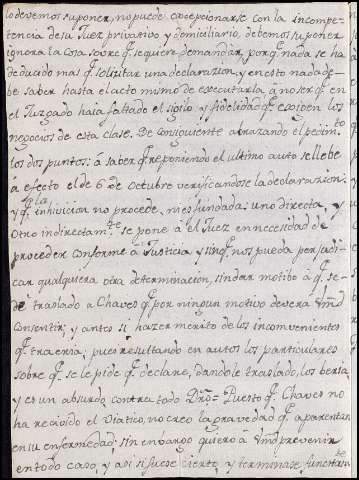 lo devemos suponer, no puede excepcionarse con la incompe-
tencia de su Juez privativo y domiciliario, debemos suponer
ignora la Cosa sovre q.^e se quiere demandar, porq.^e nada se ha
deducido mas q.^e solicitar una declarazion, y en esto nada de-
be saber hasta el acto mismo de executarla à no ser q.^e en
el Juzgado haia faltado el sigilo y fidelidad q.^e exijen los
negocios de esta clase. De consiguiente abrazando el pedim.^to
los dos puntos: a saber q.^e reponiendo el ultimo auto se llebe
à efecto el de 6 de Octubre verificandose la declarazion:
y q.^e la inhivicion no procede, ni es fundada: uno directa, y
otro indirectam.^te se pone à el Juez en necesidad de
proceder conforme à Justicia y sin q.^e nos pueda perjudi-
car qualquiera otra determinacion, sin dar motibo à q.^e se
dè traslado à Chaves q.^e por ningun motivo devera Vmd
Consentir; y antes si hazer merito de los inconvenientes
q.^e traeria; pues resultando en autos los particulares
sobre q.^e se le pide q.^e declare, dandole traslado, los beria
y es un absurdo contra todo Dro= Puesto q.^e Chaves no
ha recivido el Viatico, no creo la gravedad q.^e aparentan
en su enfermedad; sin envargo quiero à Vmd prevenir
en todo caso, y asi si fuese cierto y terminase funestam.^te